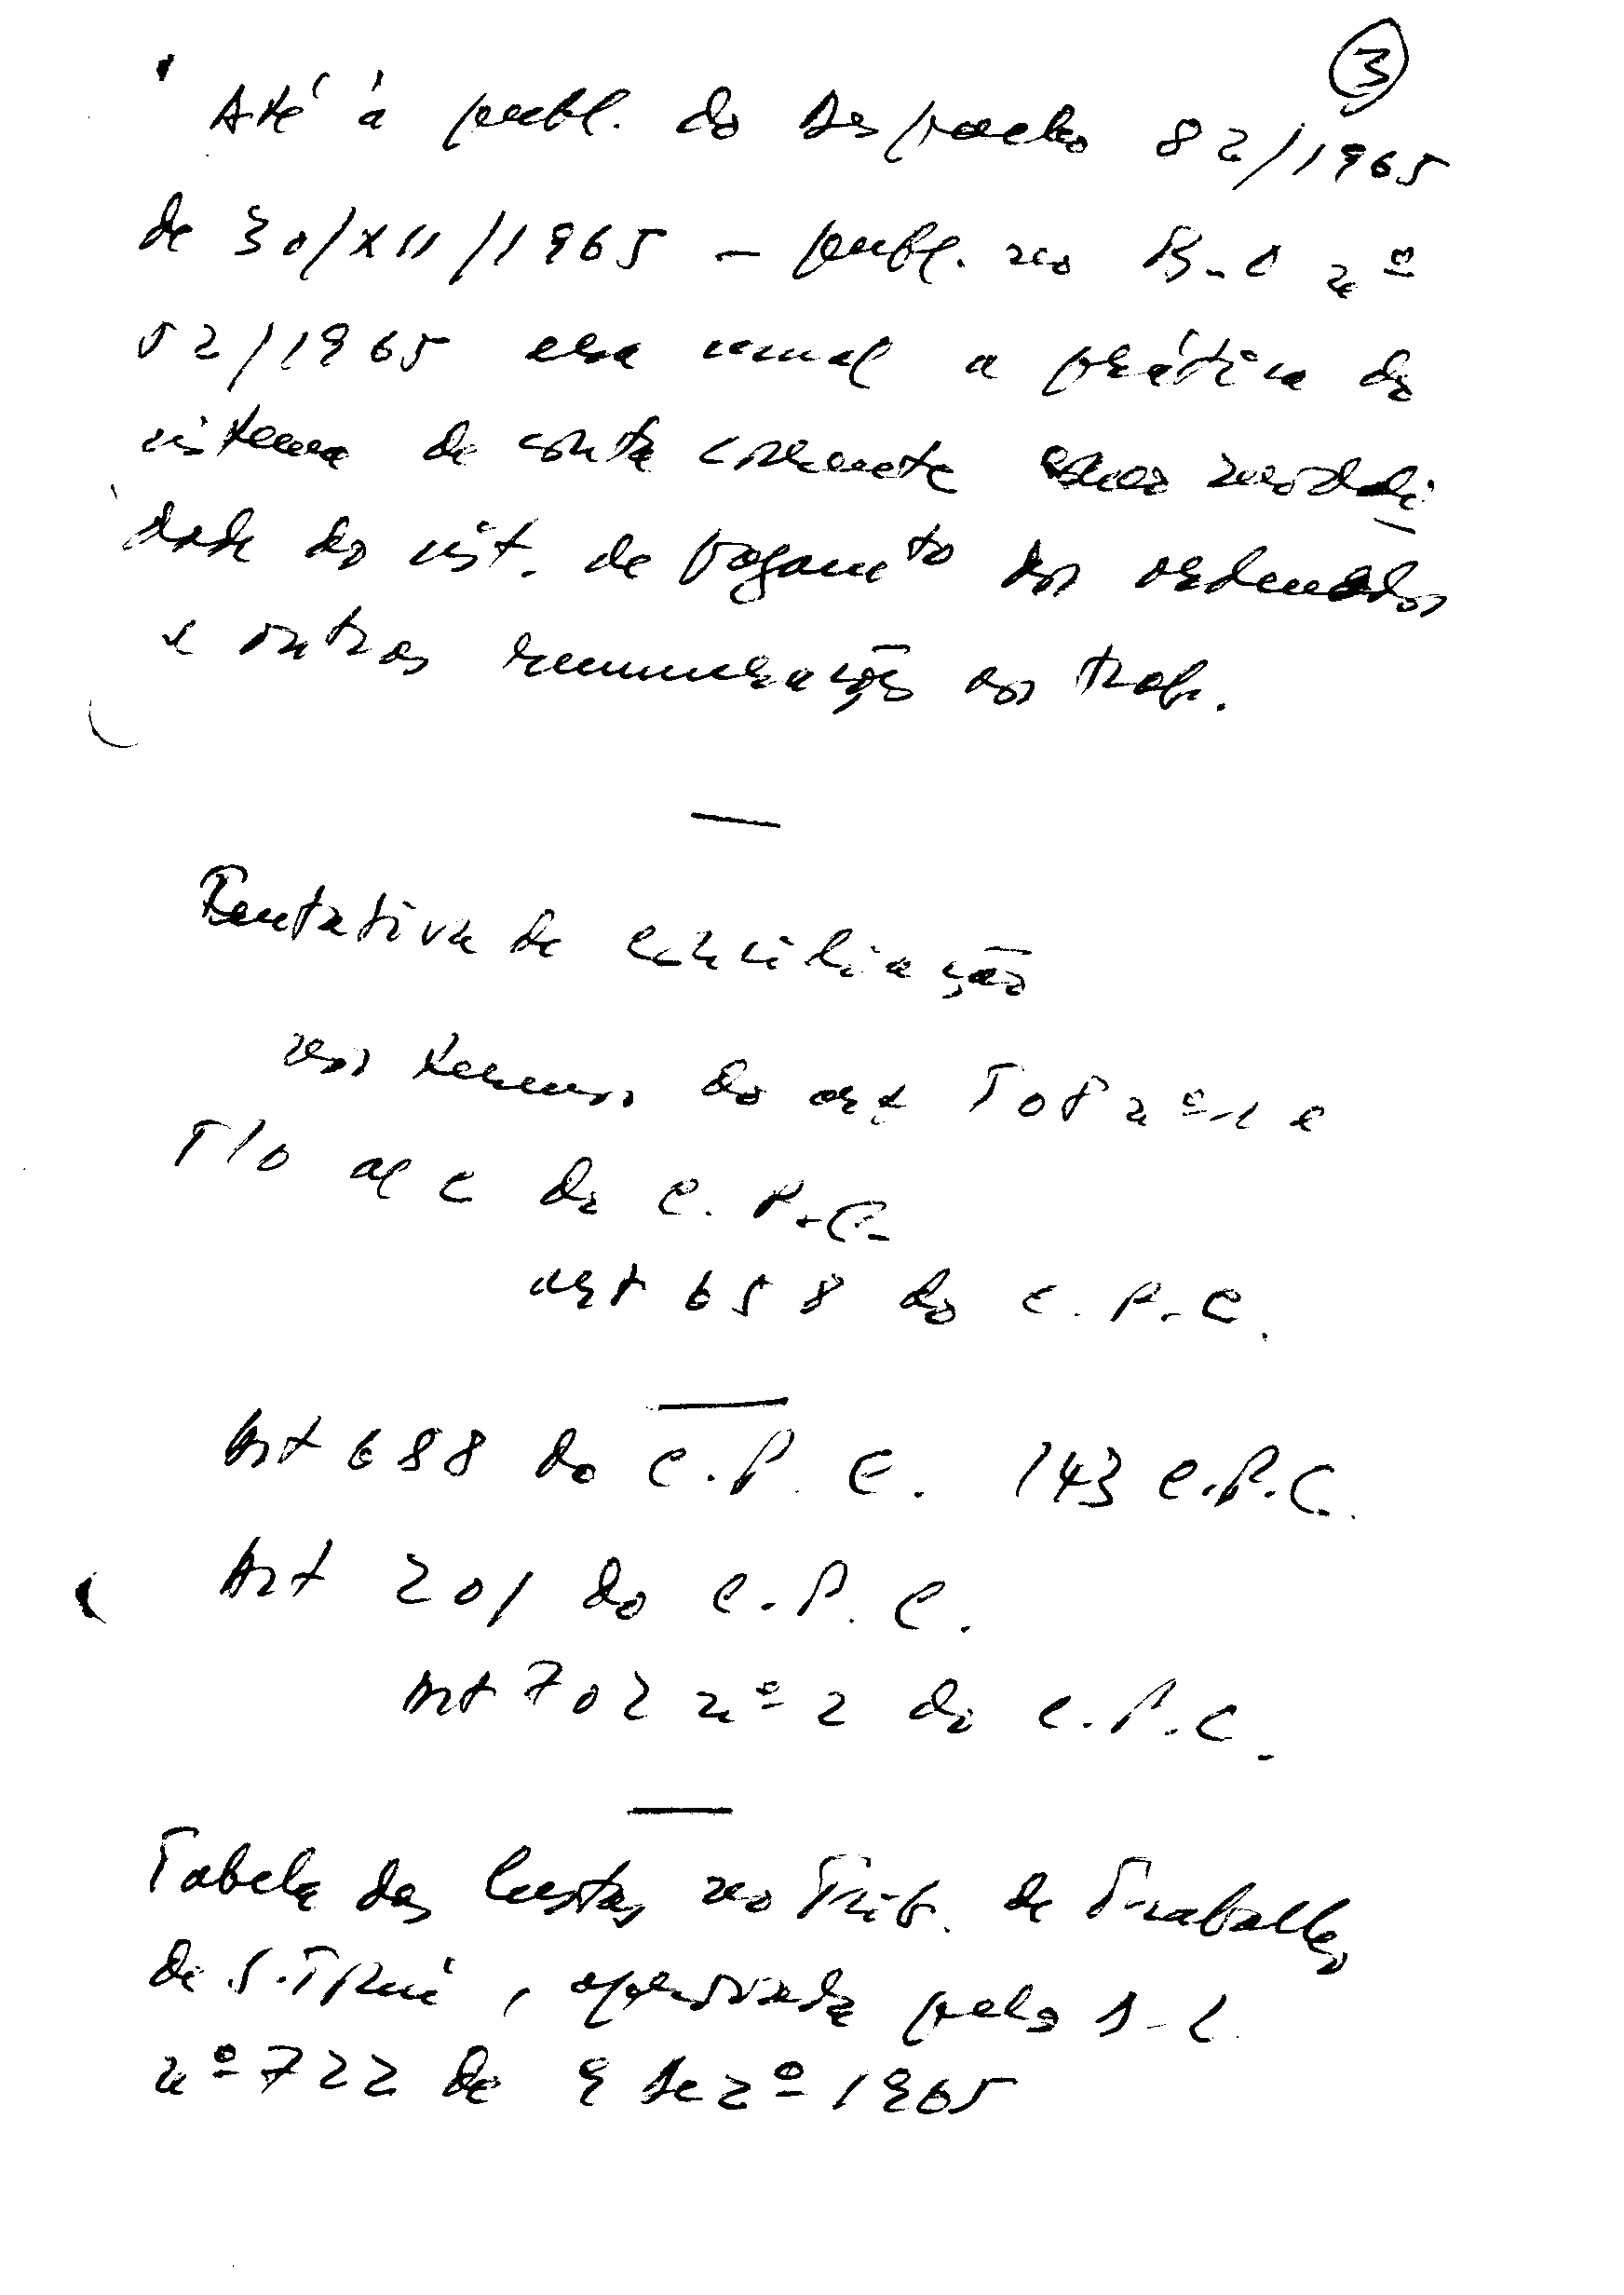 3
Até à publ. do Despacho 82/1965
de 30/XII/1965 – publ. no B-O nº
52/1965 era usual a prática do
sistema de conta corrente como modali
dade do sist. de pagamto dos ordenados
e outras remunerações aos trab.
Tentativa de conciliação
nos termos do art 508 nº 1 e
510 al c do C.P.C.
art 658 do C.P.C.
Art 688 do C.P.C. 143 C.P.C.
Art 201 do C.P.C.
Art 702 nº 2 do C.P.C.
Tabela das Custas no Trib. de Trabalho
de S.Tomé, aprovada pelo D-L
nº 722 de 9 Dezº 1965